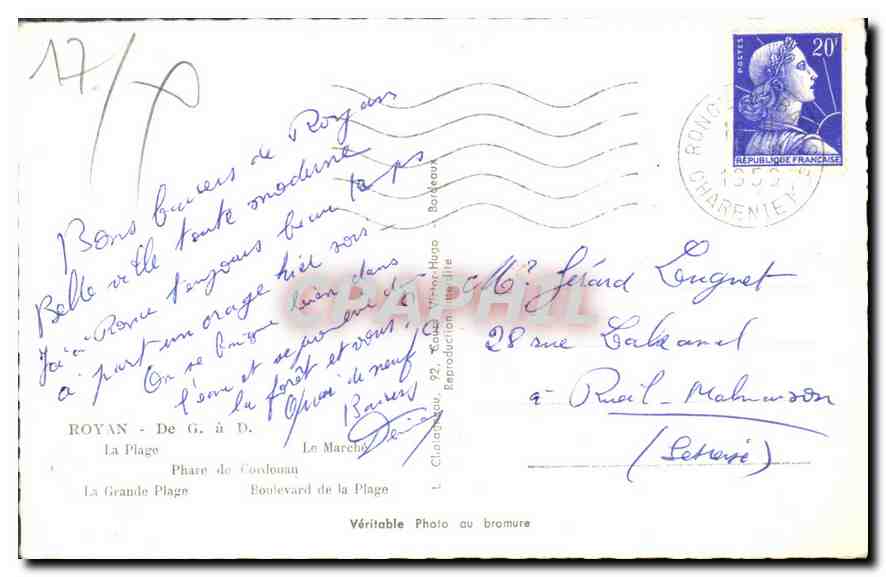 17
Bons baisers de Royan
Belle ville toute moderne
toujours beau temps
à part un orage hier soir -
On se baigne dans
l'eau et se promène ds
la forêt et vous,
Quoi de neuf
Baisers
ROYAN - De G. à D.
La Plage Le Marché
Phare de Cordouan
La Grande Plage Boulevard de la Plage
Véritable Photo au bromure
92, Cours Victor-Hugo - Bordeaux
Reproduction interdite
CPAPHIL
POSTES
20F
RÉPUBLIQUE FRANÇAISE
RONC
CHARENTE
Mr Gérard Lugnet
28 rue Lakanal
à Rueil-Malmaison